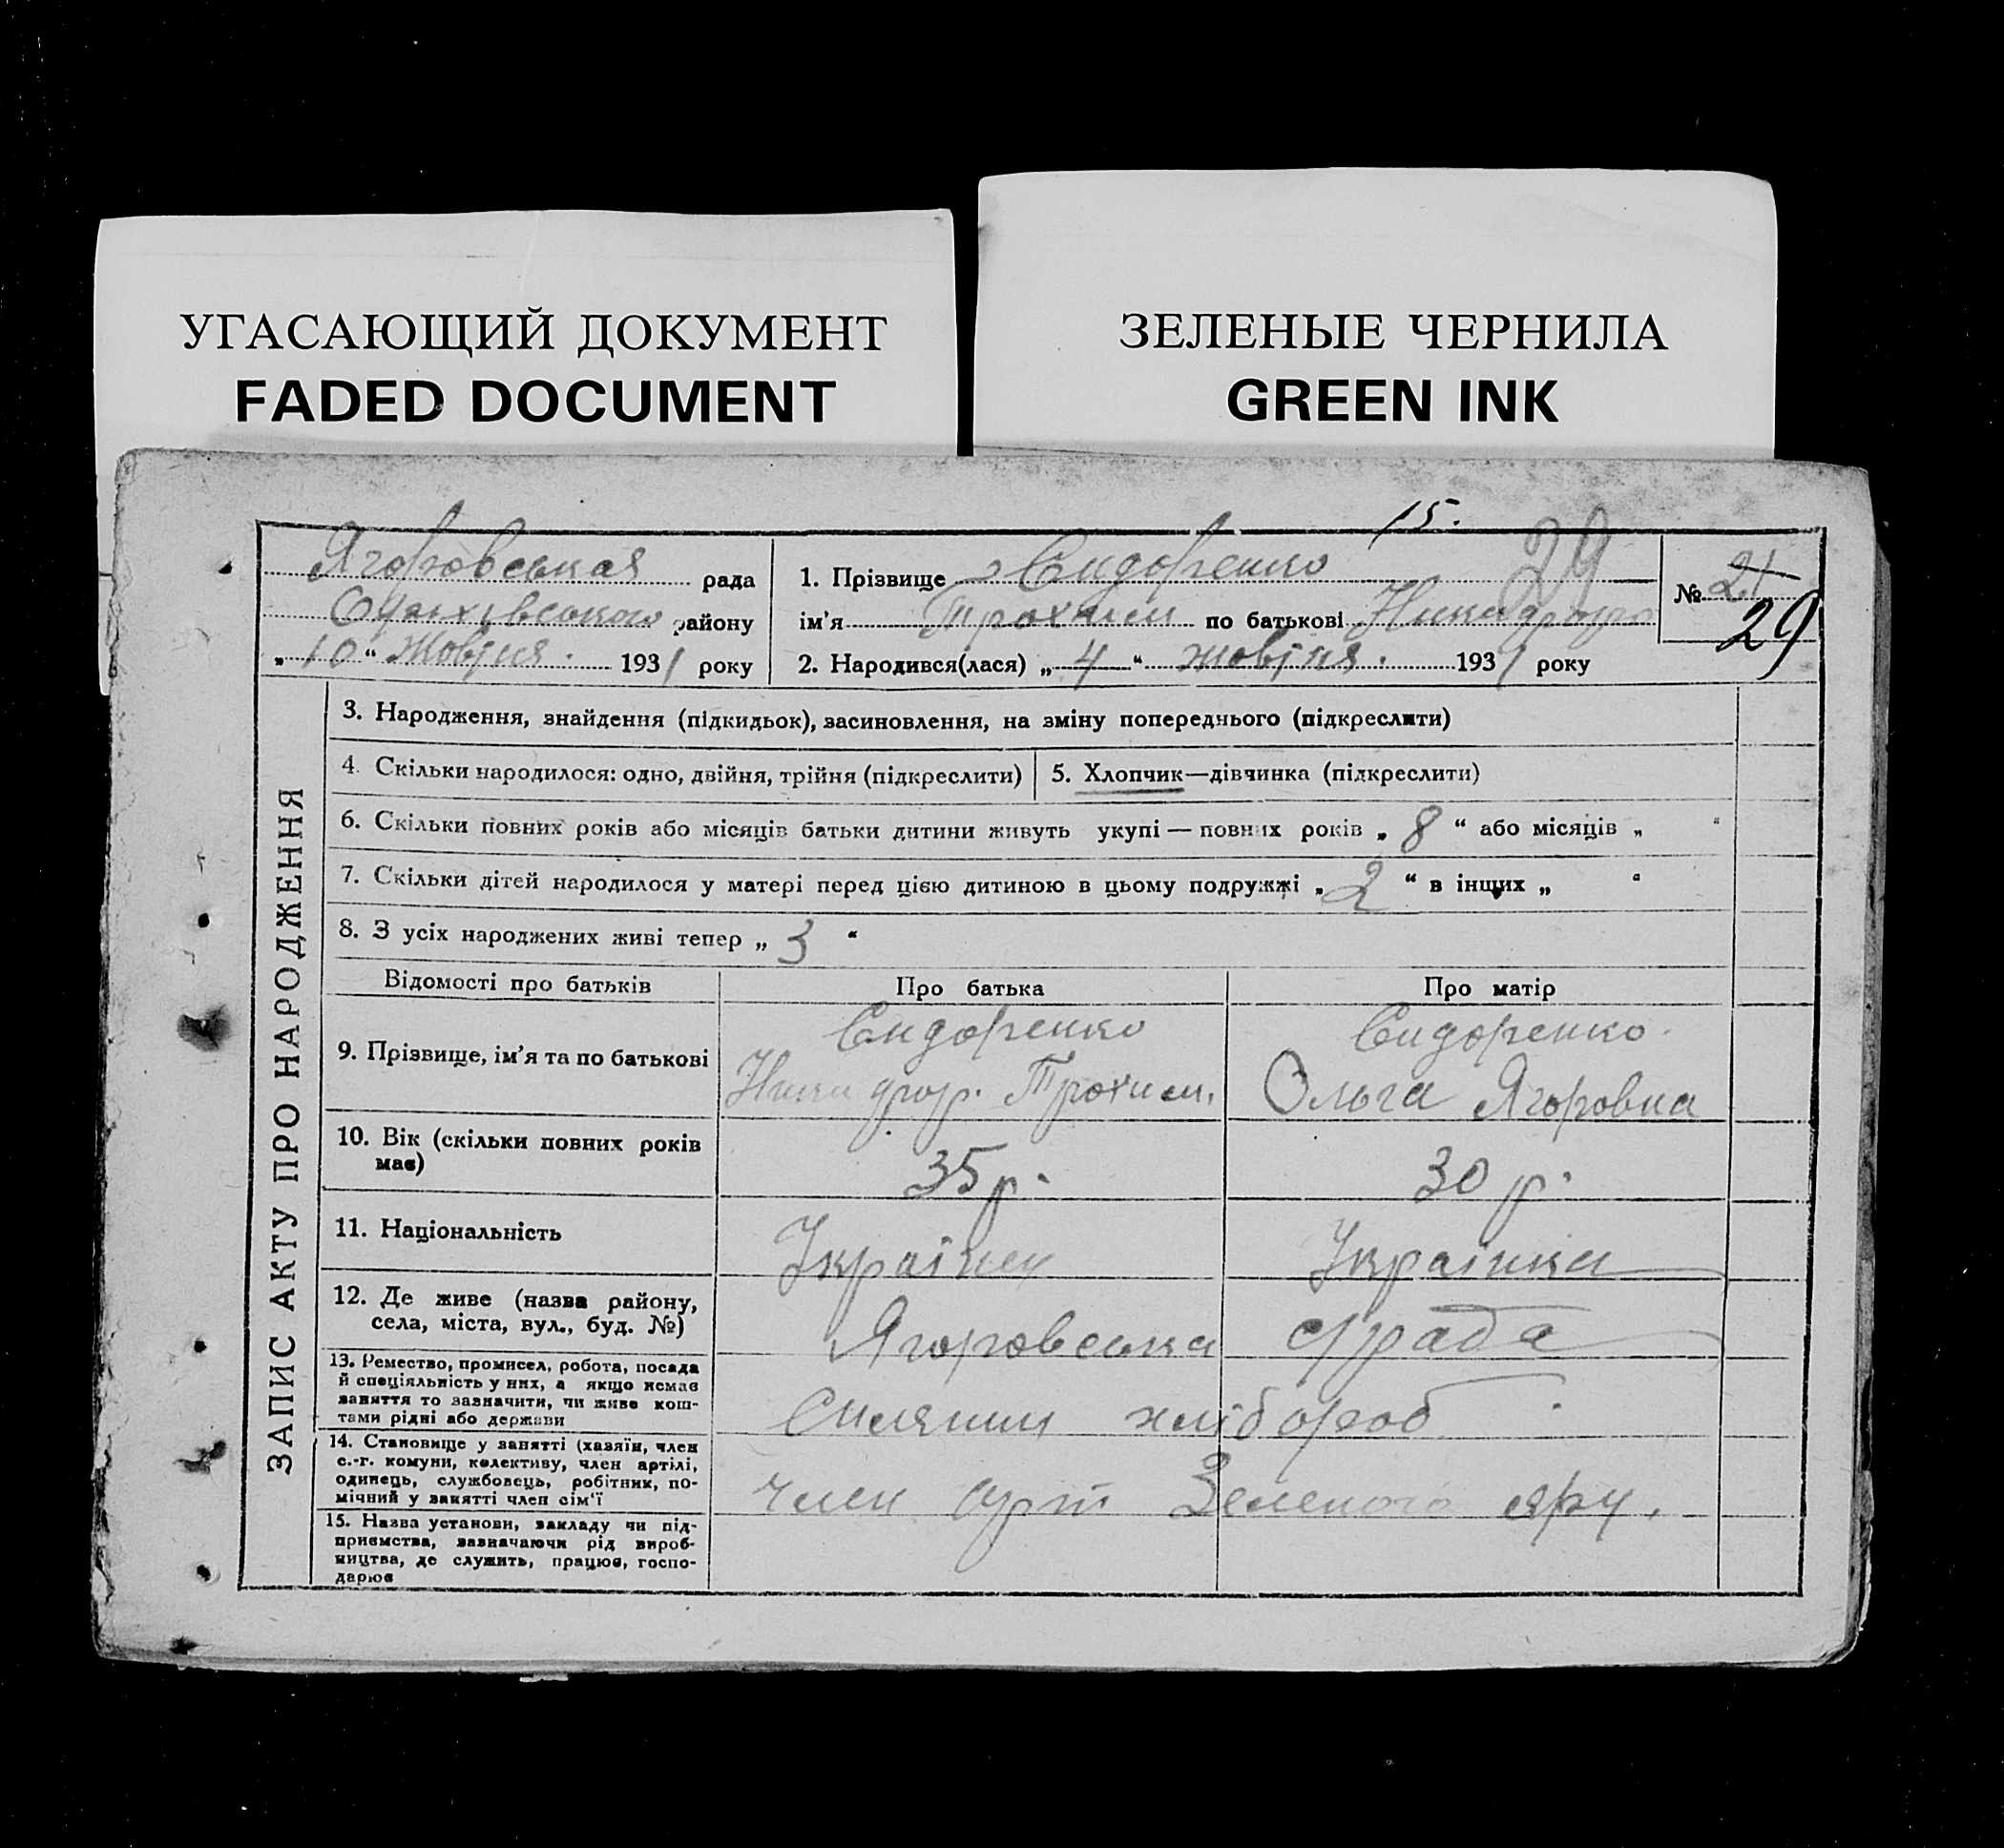 УГАСАЮЩИЙ ДОКУМЕНТ
FADED DOCUMENT
ЗЕЛЕНЫЕ ЧЕРНИЛА
GREEN INK
15.
29
Ягоровськая рада
району
„10“ Жовтня. 1931 року
1. Прізвище Сидоренко
ім’я Трохим по батькові
2. Народився(лася) „4“ жовтня. 1931 року
№ 21
29
ЗАПИС АКТУ ПРО НАРОДЖЕННЯ
3. Народження, знайдення (підкидьок), засиновлення, на зміну попереднього (підкреслити)
4. Скільки народилося: одно, двійня, трійня (підкреслити)
5. Хлопчик—дівчинка (підкреслити)
6. Скільки повних років або місяців батьки дитини живуть укупі — повних років „8“ або місяців „ “
7. Скільки дітей народилося у матері перед цією дитиною в цьому подружжі „2“ в інших „ “
8. З усіх народжених живі тепер „3“
Відомості про батьків
Про батька
Про матір
9. Прізвище, ім’я та по батькові
Сидоренко
Трохим.
Сидоренко
Ольга Ягоровна
10. Вік (скільки повних років
має)
35 р.
30 р.
11. Національність
Українец
Українка
12. Де живе (назва району,
села, міста, вул., буд. №)
Ягоровська с/рада
13. Ремество, промисел, робота, посада
й спеціяльність у них, а якщо немає
заняття то зазначити, чи живе кош-
тами рідні або держави
хлібороб
14. Становище у занятті (хазяїн, член
с.-г. комуни, колективу, член артілі,
одинець, службовець, робітник, по-
мічний у занятті член сім’ї
член арт Зеленого яру.
15. Назва установи, закладу чи під-
приємства, зазначаючи рід вироб-
ництва, де служить, працює, госпо-
дарює